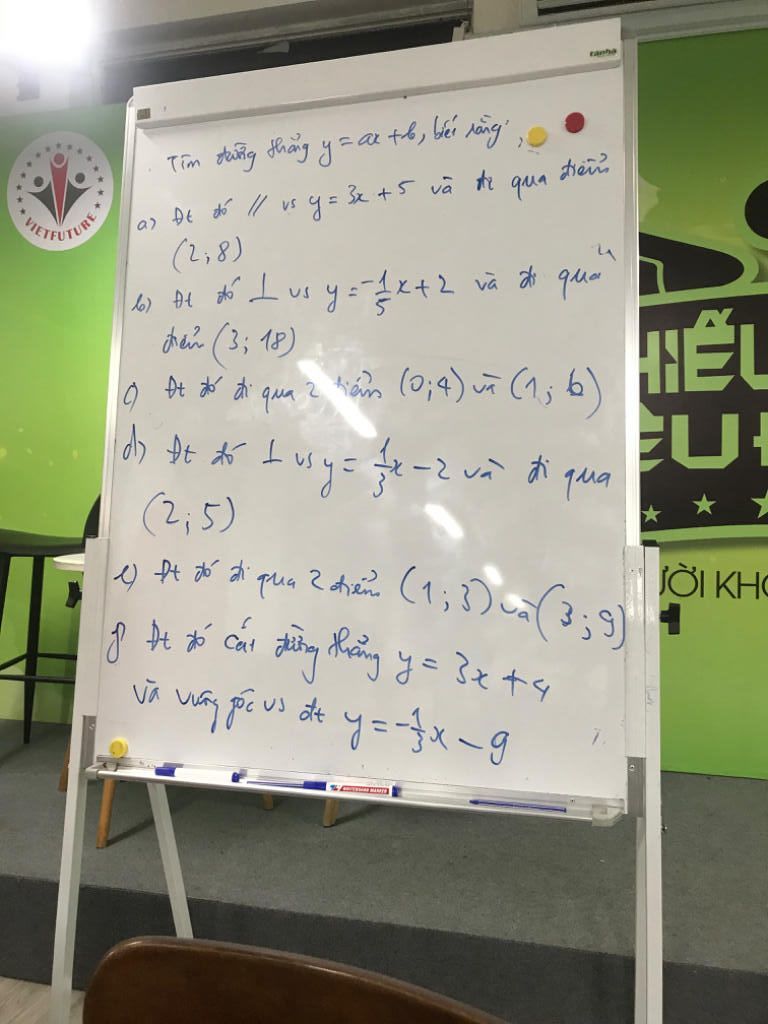 tanha
Tìm đường thẳng y = ax + b, biết rằng:
a) Đt đó // vs y = 3x + 5 và đi qua điểm
(2; 8)
b) Đt đó ⊥ vs y = -1/5x + 2 và đi qua
điểm (3; 18)
c) Đt đó đi qua 2 điểm (0; 4) và (1; 6)
d) Đt đó ⊥ vs y = 1/3x - 2 và đi qua
(2; 5)
e) Đt đó đi qua 2 điểm (1; 3) và (3; 9)
f) Đt đó cắt đường thẳng y = 3x + 4
và vuông góc vs đt y = -1/3x - 9
VIETFUTURE
HIẾU
ƯỜI KHO
WHITEBOARD MARKER